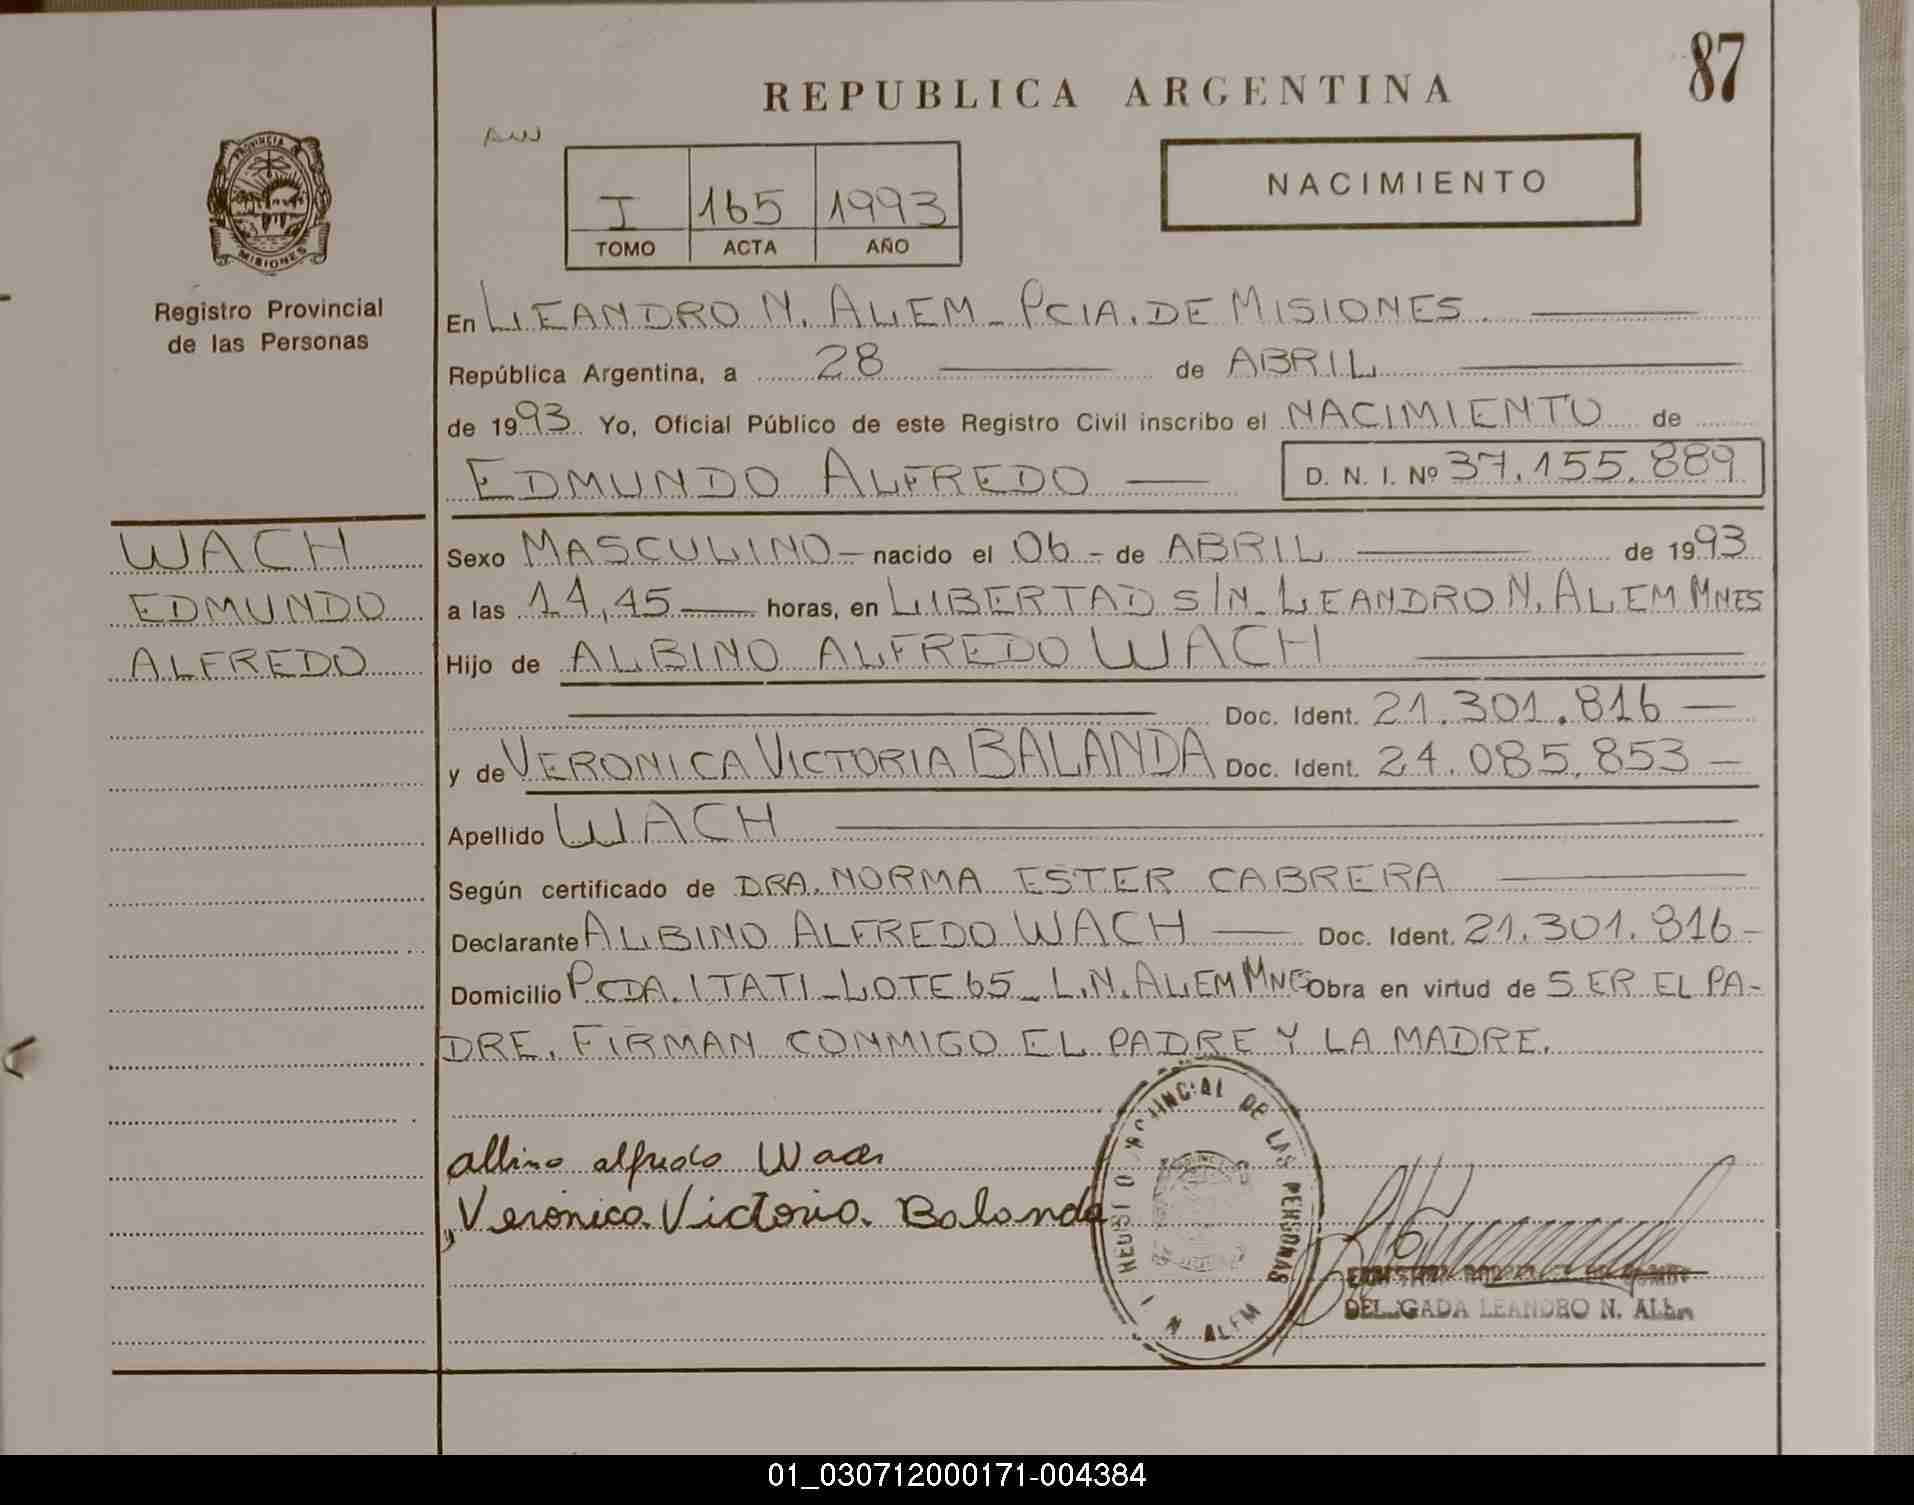 87
REPUBLICA ARGENTINA
NACIMIENTO
I 165 1993
TOMO ACTA AÑO
PROVINCIA
MISIONES
Registro Provincial
de las Personas
En LEANDRO N. ALEM - PCIA. DE MISIONES.
República Argentina, a 28 de ABRIL
de 1993 Yo, Oficial Público de este Registro Civil inscribo el NACIMIENTO de
EDMUNDO ALFREDO — D. N. I. Nº 37.155.889
WACH
EDMUNDO
ALFREDO
Sexo MASCULINO - nacido el 06 - de ABRIL de 1993
a las 14,45 horas, en LIBERTAD S/N - LEANDRO N. ALEM MNES
Hijo de ALBINO ALFREDO WACH
Doc. Ident. 21.301.816 —
y de VERONICA VICTORIA BALANDA Doc. Ident. 24.085.853 —
Apellido WACH
Según certificado de DRA. NORMA ESTER CABRERA
Declarante ALBINO ALFREDO WACH — Doc. Ident. 21.301.816 -
Domicilio PCDA. ITATI - LOTE 65 - L.N. ALEM MNES Obra en virtud de SER EL PA-
DRE. FIRMAN CONMIGO EL PADRE Y LA MADRE.
Albino alfredo Wach
Veronica Victoria Balanda
DE LAS PERSONAS
ALEM
LEANDRO N. ALEM
01_030712000171-004384